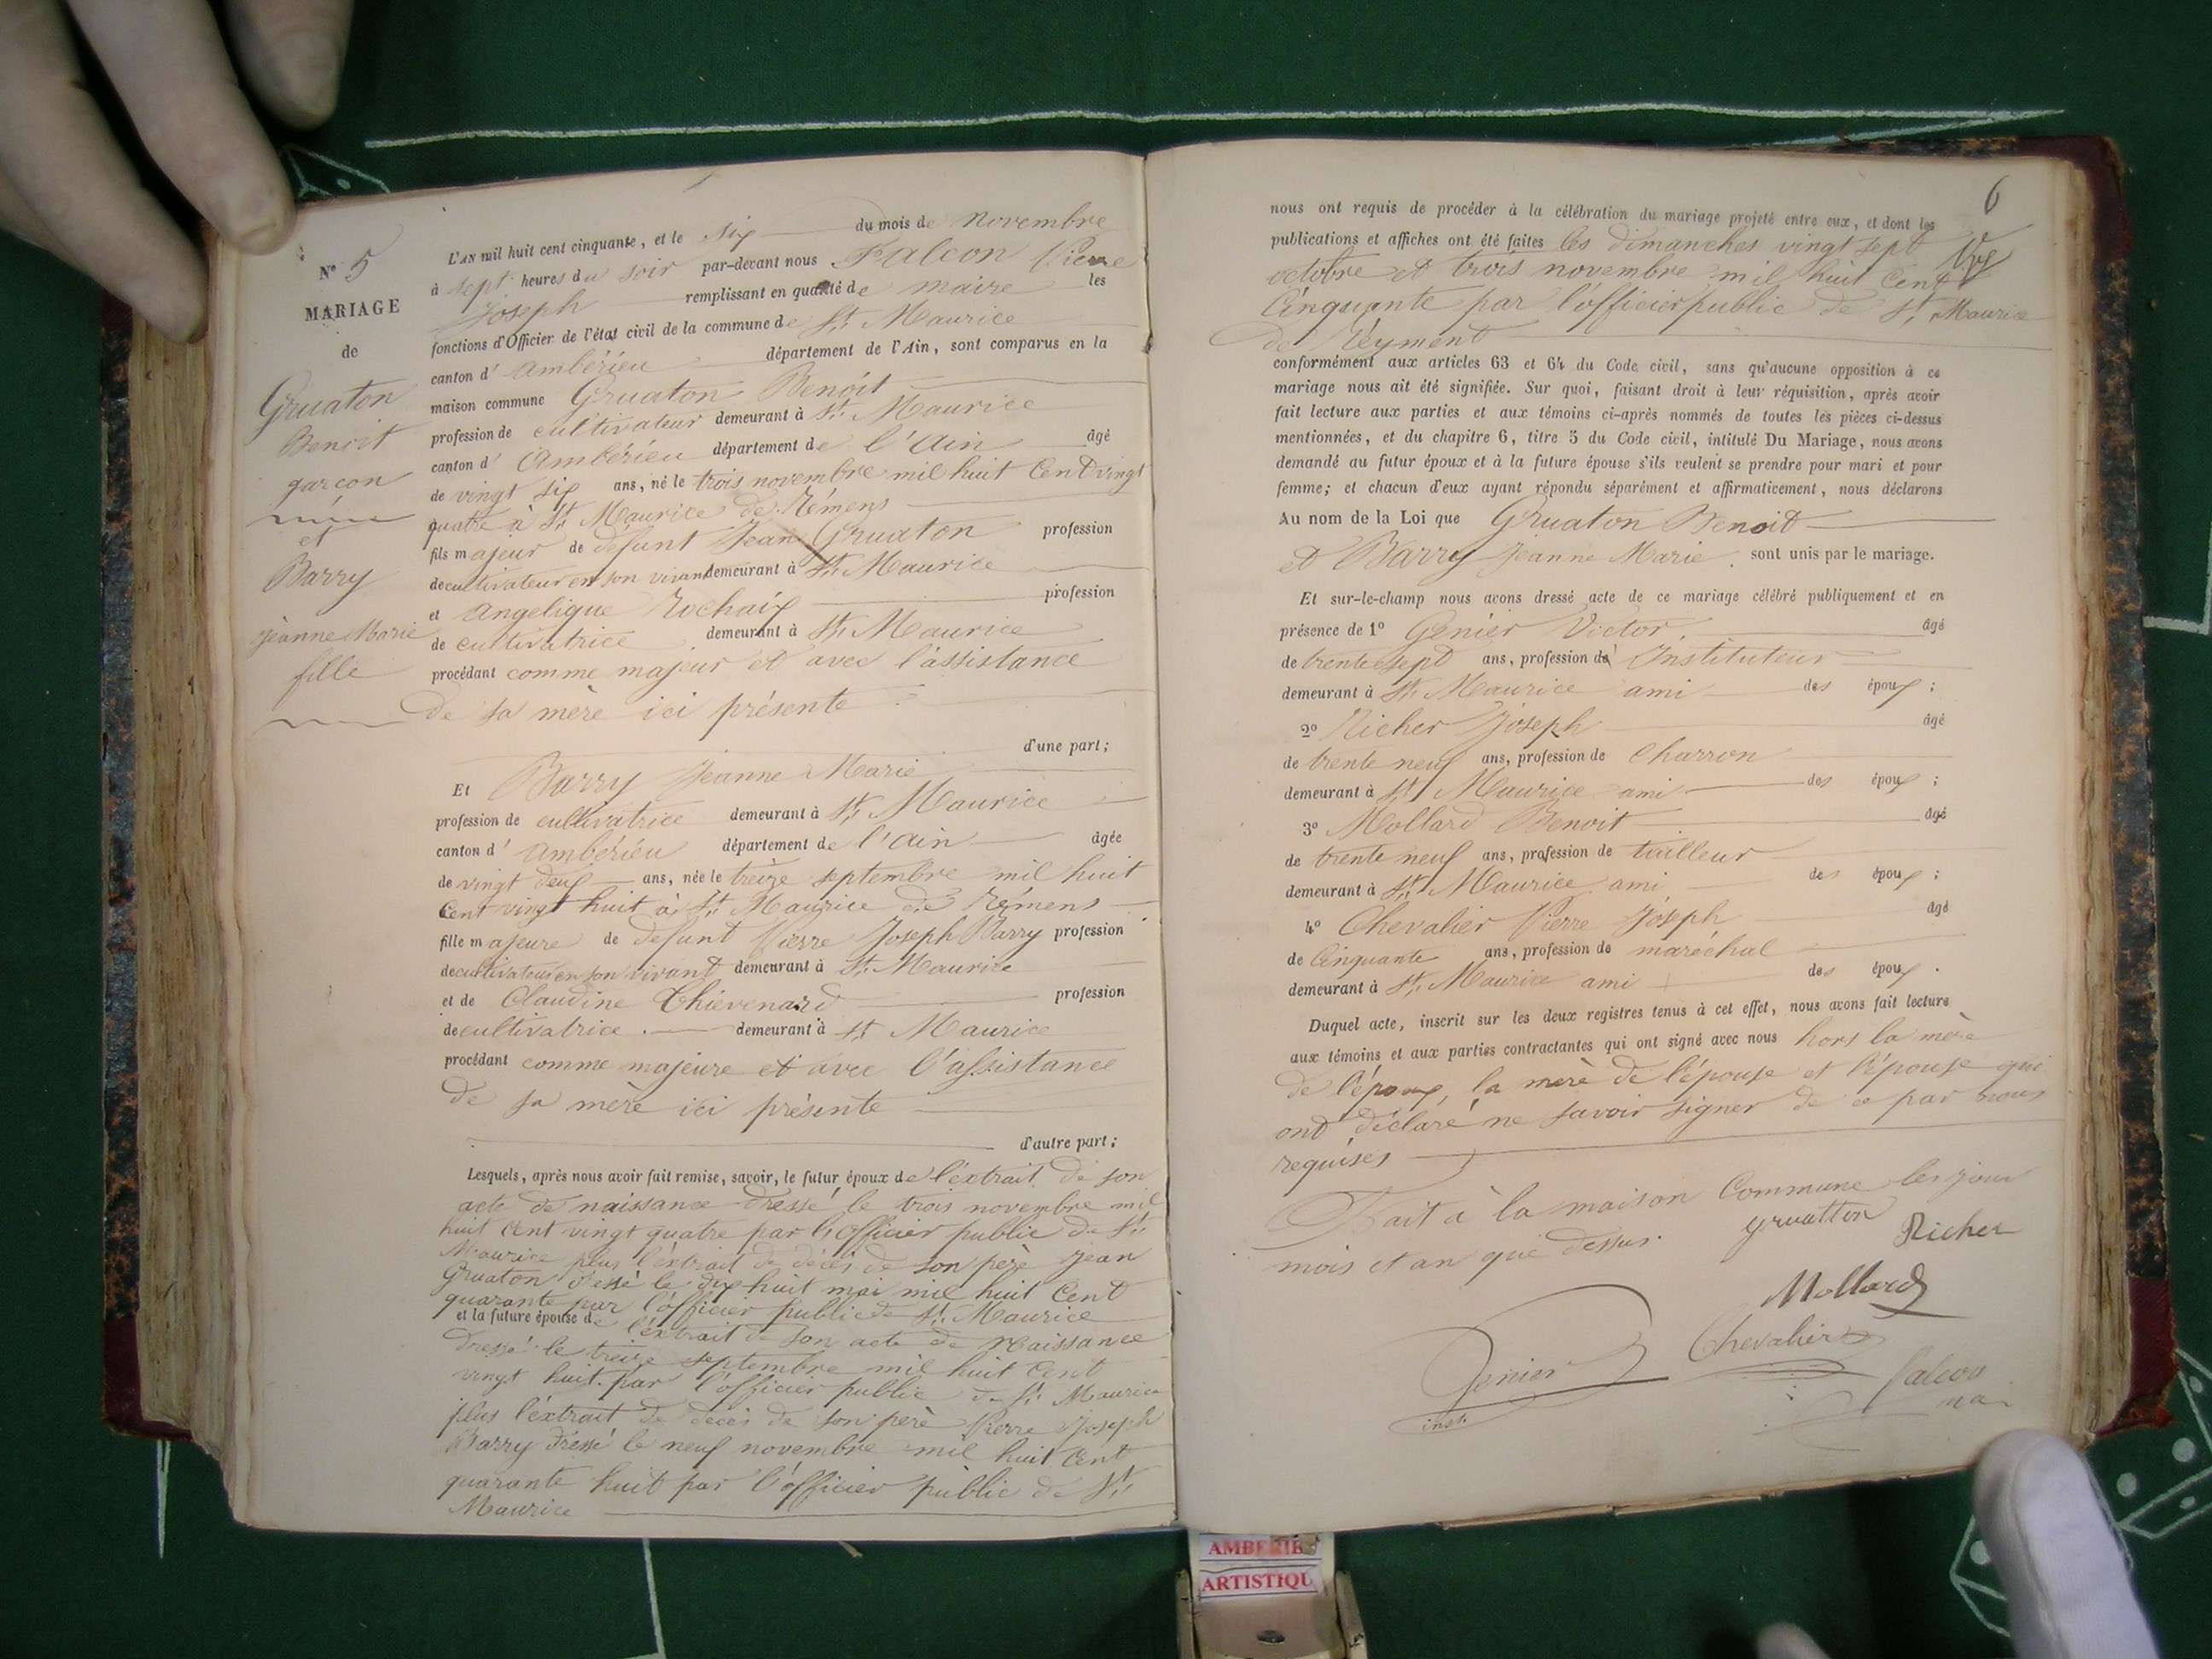 N° 5
MARIAGE
de
Gruaton
Benoit
garçon
et
Barry
Jeanne Marie
fille
L'AN mil huit cent cinquante, et le six du mois de novembre
à sept heures du soir par-devant nous Falcon Pierre
Joseph remplissant en qualité de maire les
fonctions d'Officier de l'état civil de la commune de St Maurice
canton d'ambérieu département de l'Ain, sont comparus en la
maison commune Gruaton Benoit
profession de cultivateur demeurant à St Maurice
canton d'Ambérieu département de l'Ain âgé
de vingt six ans, né le trois novembre mil huit Cent vingt
quatre à St Maurice de Rémens
fils majeur de defunt Jean Gruaton profession
de cultivateur en son vivant demeurant à St Maurice
et angelique Rochaix profession
de cultivatrice demeurant à St Maurice
procédant comme majeur et avec l'assistance
de sa mère ici présente
d'une part;
Et Barry Jeanne Marie
profession de cultivatrice demeurant à St Maurice
canton d'ambérieu département de l'ain âgée
de vingt deux ans, née le treize septembre mil huit
Cent vingt huit à St Maurice de Rémens
fille majeure de defunt Pierre Joseph Barry profession
de cultivateur en son vivant demeurant à St Maurice
et de Claudine Thievenard profession
de cultivatrice demeurant à St Maurice
procédant comme majeure et avec l'assistance
de sa mère ici présente
d'autre part;
Lesquels, après nous avoir fait remise, savoir, le futur époux de l'extrait de son
acte de naissance dressé le trois novembre mil
huit cent vingt quatre par l'officier public de St
Maurice plus l'extrait de décès de son père Jean
Gruaton dressé le dix huit mai mil huit Cent
quarante par l'officier public de St Maurice
et la future épouse de l'extrait de son acte de naissance
dressé le treize septembre mil huit Cent
vingt huit par l'officier public de St Maurice
plus l'extrait de décès de son père Pierre Joseph
Barry dressé le neuf novembre mil huit Cent
quarante huit par l'officier public de St
Maurice
6
nous ont requis de procéder à la célébration du mariage projeté entre eux, et dont les
publications et affiches ont été faites les dimanches vingt sept
octobre et trois novembre mil huit Cent
Cinquante par l'officier public de St Maurice
de
conformément aux articles 63 et 64 du Code civil, sans qu'aucune opposition à ce
mariage nous ait été signifiée. Sur quoi, faisant droit à leur réquisition, après avoir
fait lecture aux parties et aux témoins ci-après nommés de toutes les pièces ci-dessus
mentionnées, et du chapitre 6, titre 5 du Code civil, intitulé Du Mariage, nous avons
demandé au futur époux et à la future épouse s'ils veulent se prendre pour mari et pour
femme; et chacun d'eux ayant répondu séparément et affirmativement, nous déclarons
Au nom de la Loi que Gruaton Benoit
et Barry Jeanne Marie. sont unis par le mariage.
Et sur-le-champ nous avons dressé acte de ce mariage célébré publiquement et en
présence de 1° Genier Victor. âgé
de trente sept ans, profession d' Instituteur
demeurant à St Maurice ami des époux;
2° Richer Joseph âgé
de trente neuf ans, profession de Charron
demeurant à St Maurice ami des époux;
3° Mollard Benoit âgé
de trente neuf ans, profession de tailleur
demeurant à St Maurice ami des époux;
4° Chevalier Pierre Joseph âgé
de Cinquante ans, profession de maréchal
demeurant à St Maurice ami des époux.
Duquel acte, inscrit sur les deux registres tenus à cet effet, nous avons fait lecture
aux témoins et aux parties contractantes qui ont signé avec nous hors la mère
de l'époux, la mère de l'épouse et l'épouse qui
ont déclaré ne savoir signer de ce par nous
requises
Fait à la maison Commune les jour
mois et an que dessus.
gruatton
Richer
Mollard
Chevalier
Genier
inst.
falcon
mai
AMBERIE
ARTISTIQU